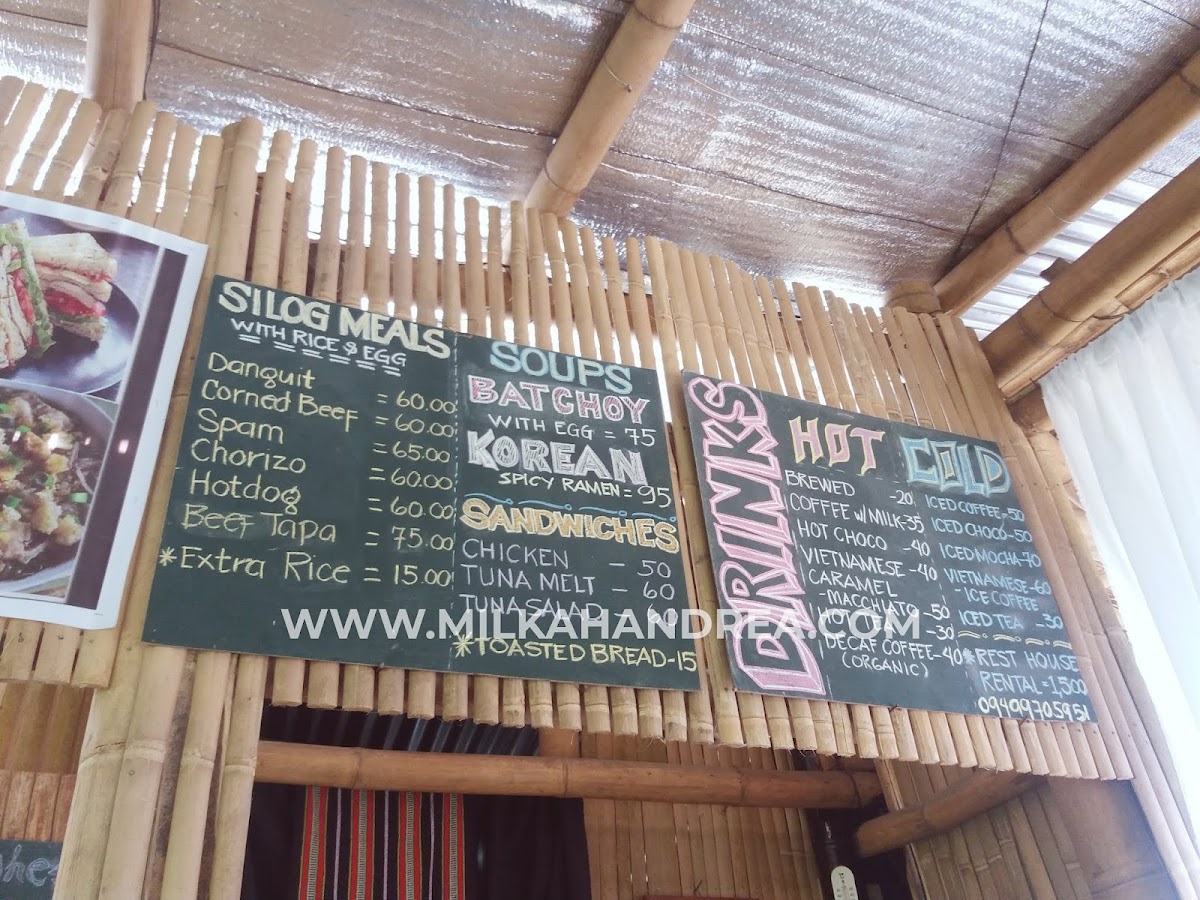 SILOG MEALS
WITH RICE & EGG
Danguit = 60.00
Corned Beef = 60.00
Spam = 65.00
Chorizo = 60.00
Hotdog = 60.00
Beef Tapa = 75.00
*Extra Rice = 15.00
SOUPS
BATCHOY
WITH EGG = 75
KOREAN
SPICY RAMEN = 95
SANDWICHES
CHICKEN - 50
TUNA MELT - 60
TUNA SALAD 60
*TOASTED BREAD-15
DRINKS
HOT
BREWED -20
COFFEE W/MILK-35
HOT CHOCO -40
VIETNAMESE -40
CARAMEL
-MACCHIATO -50
HOT TEA -30
DECAF COFFEE-40
(ORGANIC)
COLD
ICED COFFEE-50
ICED CHOCO-50
ICED MOCHA-70
VIETNAMESE-60
-ICE COFFEE
ICED TEA -30
*REST HOUSE
RENTAL=1,500
09499705951
WWW.MILKAHANDREA.COM